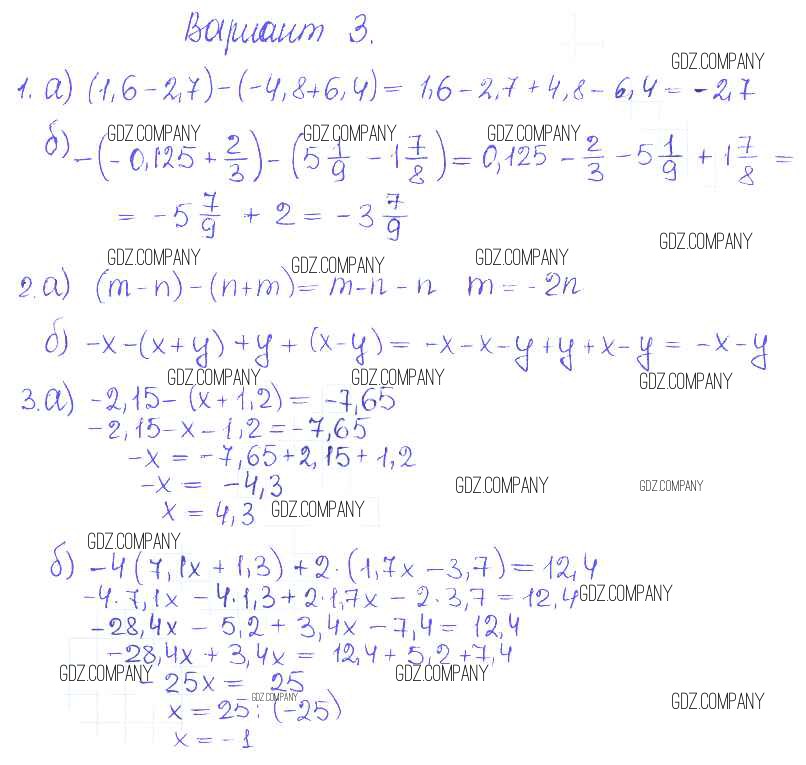 Вариант 3.
GDZ.COMPANY
1. а) (1,6 - 2,7) - (-4,8 + 6,4) = 1,6 - 2,7 + 4,8 - 6,4 = -2,7
GDZ.COMPANY GDZ.COMPANY GDZ.COMPANY
б) -(-0,125 + 2/3) - (5 1/9 - 1 7/8) = 0,125 - 2/3 - 5 1/9 + 1 7/8 =
= -5 7/9 + 2 = -3 7/9
GDZ.COMPANY
GDZ.COMPANY GDZ.COMPANY GDZ.COMPANY
2. а) (m - n) - (n + m) = m - n - n m = -2n
б) -x - (x + y) + y + (x - y) = -x - x - y + y + x - y = -x - y
GDZ.COMPANY GDZ.COMPANY GDZ.COMPANY
3. а) -2,15 - (x + 1,2) = -7,65
-2,15 - x - 1,2 = -7,65
-x = -7,65 + 2,15 + 1,2
-x = -4,3
GDZ.COMPANY GDZ.COMPANY
x = 4,3 GDZ.COMPANY
GDZ.COMPANY
б) -4(7,1x + 1,3) + 2·(1,7x - 3,7) = 12,4
-4·7,1x - 4·1,3 + 2·1,7x - 2·3,7 = 12,4 GDZ.COMPANY
-28,4x - 5,2 + 3,4x - 7,4 = 12,4
-28,4x + 3,4x = 12,4 + 5,2 + 7,4
GDZ.COMPANY GDZ.COMPANY
-25x = 25
GDZ.COMPANY
x = 25 : (-25)
GDZ.COMPANY
x = -1